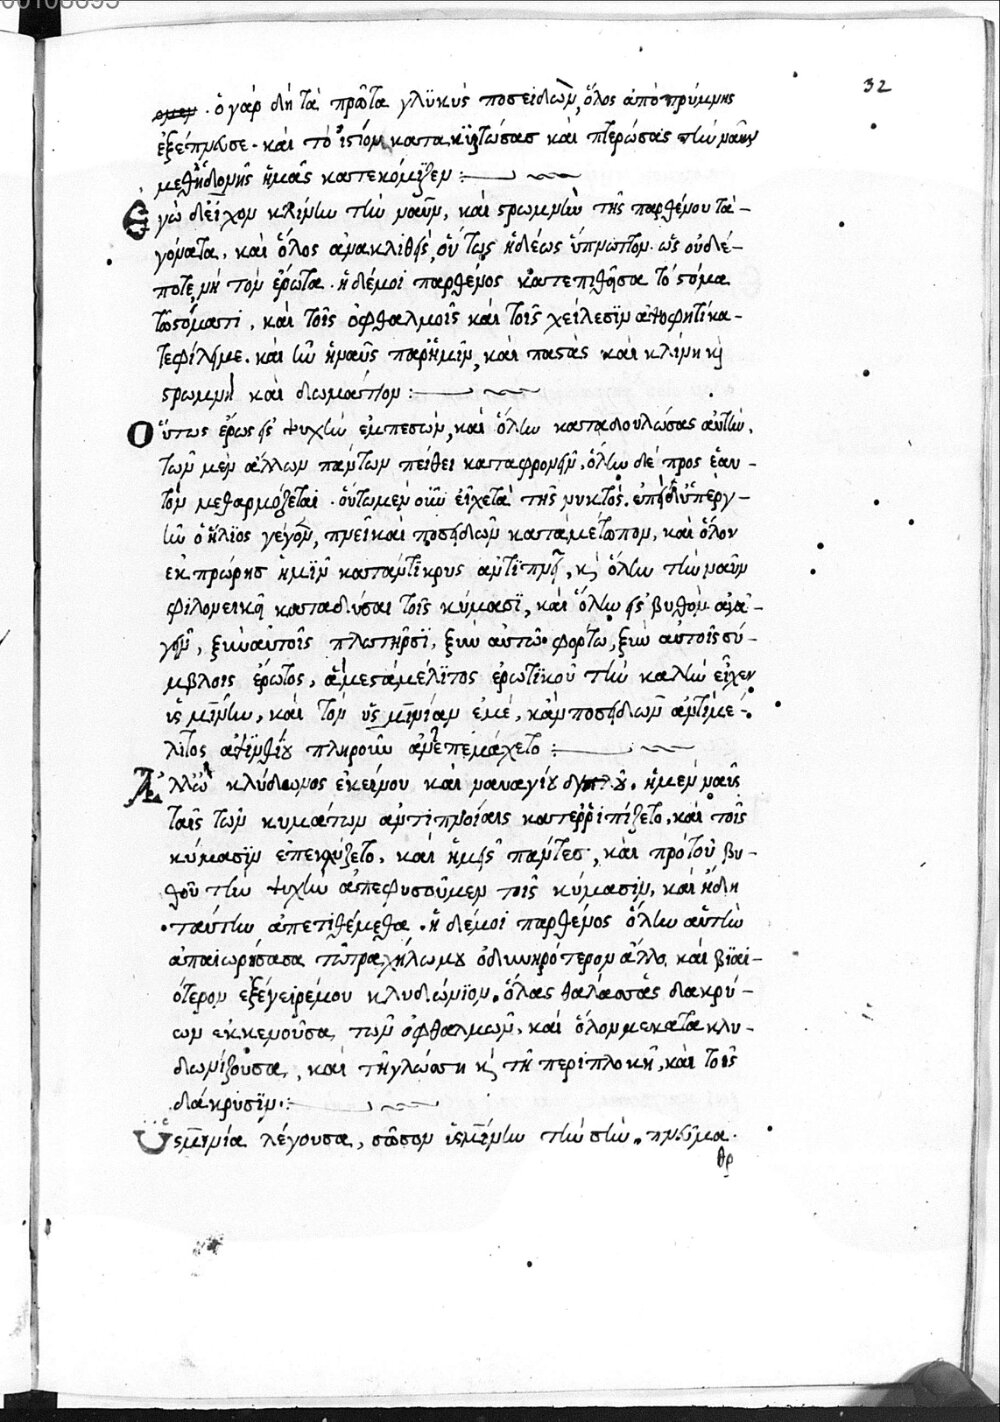 32
ομεν. ὁ γάρ δὴ τὰ πρῶτα γλϋκὺς ποσειδῶν, ὅλος ἀπὸ πρύμνης
ἐξέπνευσε. καὶ τὸ ἱστίον κατακϋρτώσας καὶ πτερώσας τὴν ναῦν
μεθ' ἡδονῆς ἡμᾶς κατεκόμϊζεν :
Ἐγὼ δ' εἶχον κλίνην τὴν ναῦν, καὶ στρωμνὴν τῆς παρθένου τὰ-
γόνατα, καὶ ὅλος ἀνακλιθεὶς, οὕτως ἡδέως ὕπνωττον. ὡς οὐδέ-
ποτε, νὴ τὸν ἔρωτα. ἡ δέ μοι παρθένος κατεπιθεῖσα τὸ στόμα
τῶ στόματι, καὶ τοῖς ὀφθαλμοῖς καὶ τοῖς χείλεσϊν
τεφίλει με. καὶ ἦν ἡ ναῦς παρ' ἡμῖν, καὶ παστὰς καὶ κλίνη κὶ
στρωμνὴ καὶ δωμάτιον :
Οὕτως ἔρως εἰς ψυχὴν ἐμπεσὼν, καὶ ὅλην καταδουλώσας αὐτὴν,
τῶν μὲν ἄλλων πάντων πείθει καταφρονεῖν, ὅλην δὲ προς ἑαυ-
τὸν μεθαρμόζεται. οὕτω μὲν οὖν εἶχε τὰ τῆς νυκτός. ἐπεὶ δ' ὑπὲργ-
ῆν ὁ ἥλϊος γέγον, πνεῖ καὶ ποσειδῶν κατὰ μέτωπον, καὶ ὅλον
ἐκ πρώρης ἡμῖν καταντϊκρυς ἀντϊπνεῖ, κὶ ὅλην τὴν ναῦν
φϊλονεικεῖ καταδύσαι τοῖς κύμασϊ, καὶ ὅλην εἰς βυθὸν ἀγα-
γεῖν, ξὺν αὐτοῖς πλωτῆρσϊ, ξὺν αὐτῶ φόρτω, ξὺν αὐτοῖς συ-
μβλοις ἔρωτος,
ὑσμίνην, καὶ τὸν ὑσμινίαν ἐμέ, κἂν ποσειδῶν ἀντὶ μέ-
λιτος ἀψϊνθίου πληροῦν
Ἀλλ' ὁ κλύδωνος ἐκείνου καὶ ναυαγίου ἡ μὲν ναῦς
ταῖς τῶν κυμάτων ἀντιπνοίαις κατερριπίζετο, καὶ τοῖς
κύμασϊν καὶ ἡμεῖς πάντες, καὶ πρὸ τοῦ βυ-
θοῦ τὴν ψυχὴν ἀπεφυσοῦμεν τοῖς κύμασϊν, καὶ ἤδη
ταύτην ἀπετιθέμεθα. ἡ δέ μοι παρθένος ὅλην αὑτὴν
ἀπαιωρήσασα τῶ τραχήλω μου ὀδυνηρότερον ἄλλο, καὶ βϊαι-
ότερον ἐξέγειρέ μου κλυδώνϊον, ὅλας θαλάσσας δακρύ-
ων ἐκκενοῦσα τῶν ὀφθαλμῶν, καὶ ὅλον με κατακλυ-
δωνίζουσα, καὶ τῆ γλώσση κὶ τῆ περιπλοκῆ, καὶ τοῖς
δάκρυσϊν :
Ὑσμινία λέγουσα, σῶσον ὑσμίνην τὴν σὴν. πνεῦμα.
θρ